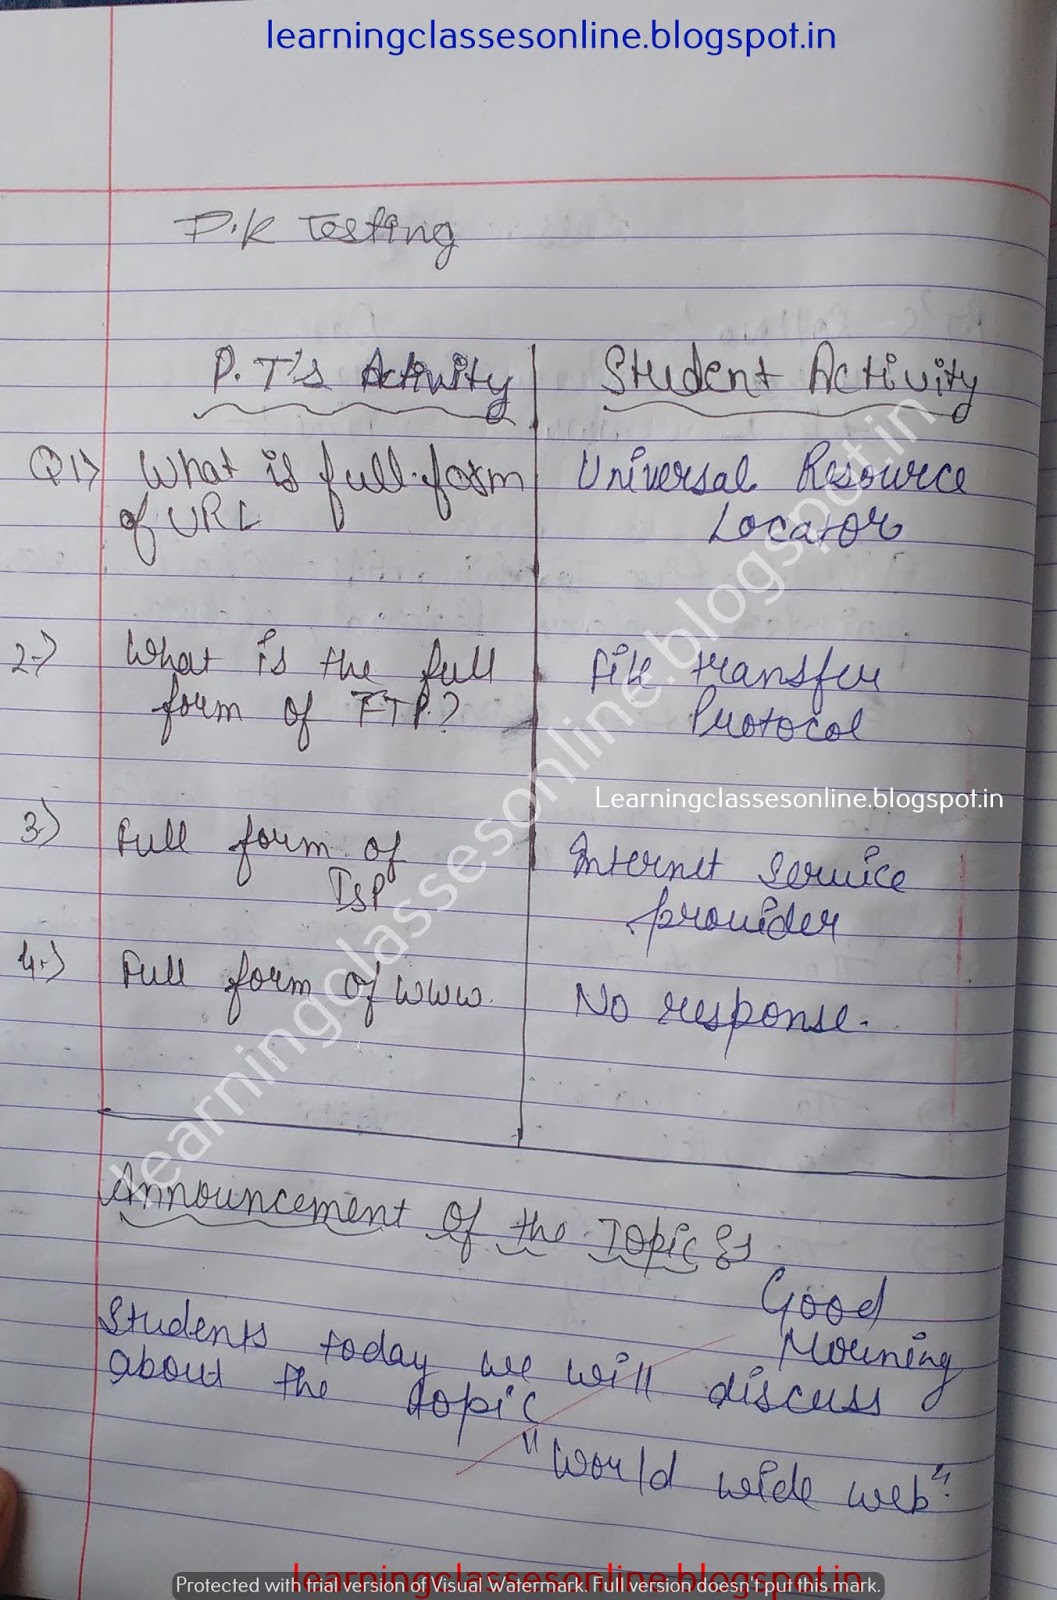 learningclassesonline.blogspot.in
P.K Testing
P.T's Activity
Student Activity
Q1) What is full form
of URL
Universal Resource
Locator
2.) What is the full
form of FTP.?
File transfer
Protocol
Learningclassesonline.blogspot.in
3.) Full form of
ISP
Internet Service
provider
4.) Full form of www.
No response.
learningclassesonline.blogspot.in
Announcement of the Topic
Good
Morning
Students today we will discuss
about the topic
"World wide web".
learningclassesonline.blogspot.in
Protected with trial version of Visual Watermark. Full version doesn't put this mark.